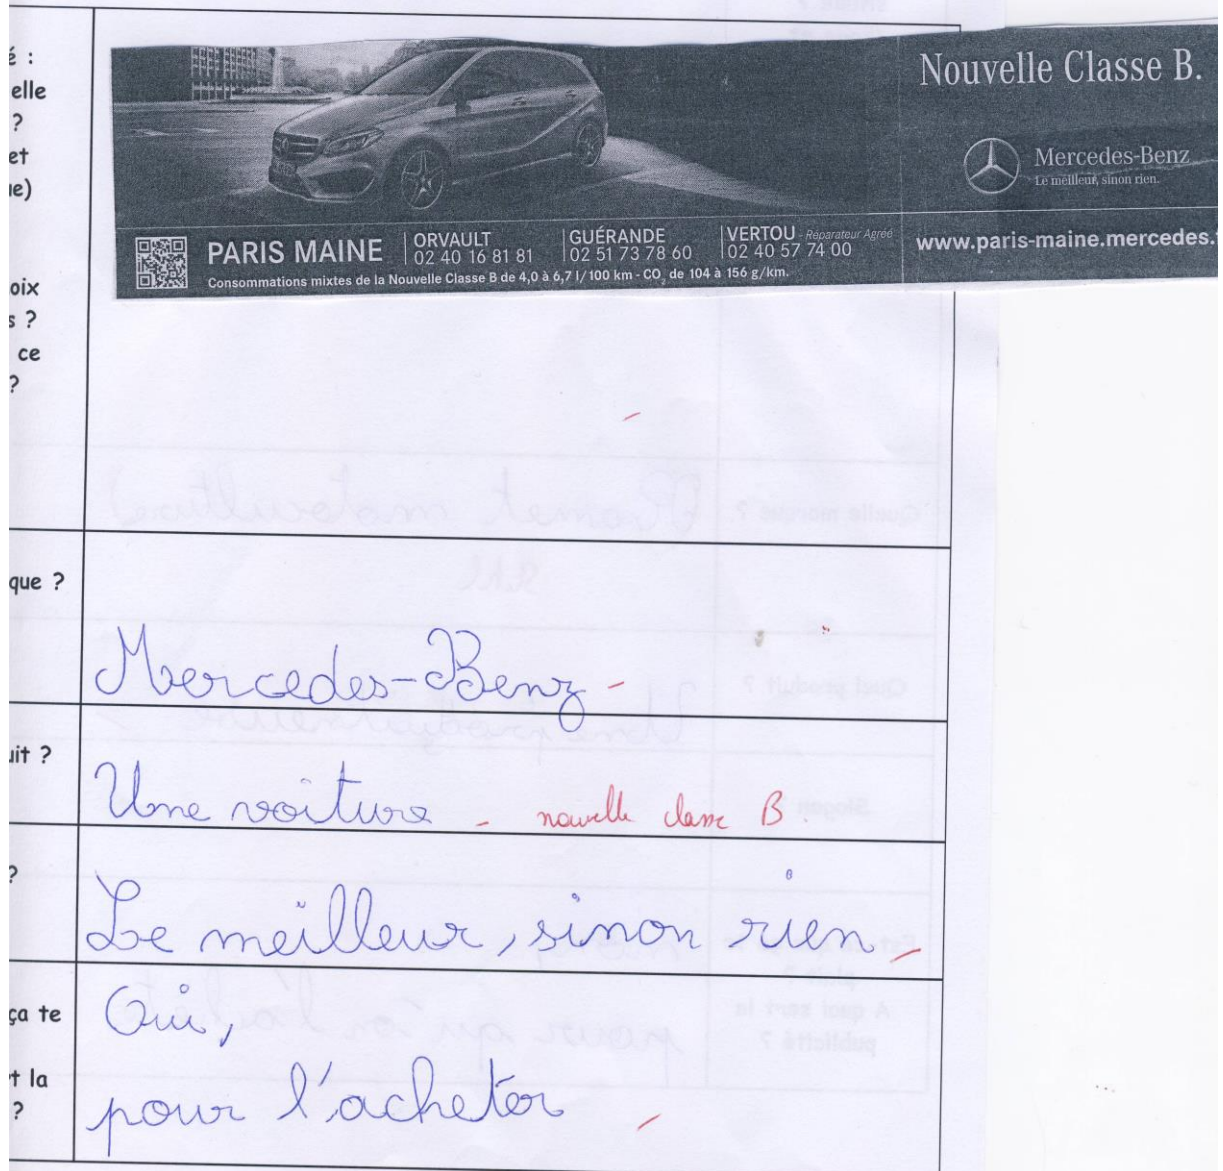 é :
elle
?
et
ue)
oix
s ?
ce
?
Nouvelle Classe B.
Mercedes-Benz
Le meilleur, sinon rien.
PARIS MAINE
ORVAULT
02 40 16 81 81
GUÉRANDE
02 51 73 78 60
VERTOU - Réparateur Agréé
02 40 57 74 00
www.paris-maine.mercedes.
Consommations mixtes de la Nouvelle Classe B de 4,0 à 6,7 l/100 km - CO₂ de 104 à 156 g/km.
que ?
Mercedes-Benz
uit ?
Une voiture - nouvelle classe B.
?
Le meilleur, sinon rien.
ça te
Oui,
t la
?
pour l'acheter
Quelle marque ?
Quel produit ?
Slogan
plait ?
A quoi sert la
publicité ?
pour qu'on l'achète